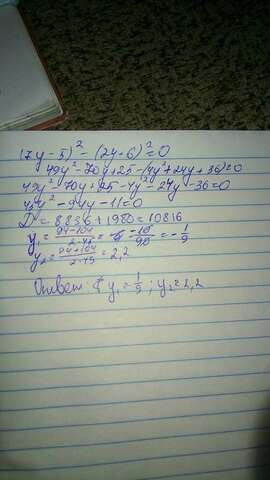 (7y-5)² - (2y-6)² = 0
49y² - 70y + 25 - (4y² + 24y + 36) = 0
49y² - 70y + 25 - 4y² - 24y - 36 = 0
45y² - 94y - 11 = 0
D = 8836 + 1980 = 10816
y₁ = (94-104)/(2·45) = -10/90 = -1/9
y₂ = (94+104)/(2·45) = 2,2
Ответ: y₁ = -1/9 ; y₂ = 2,2